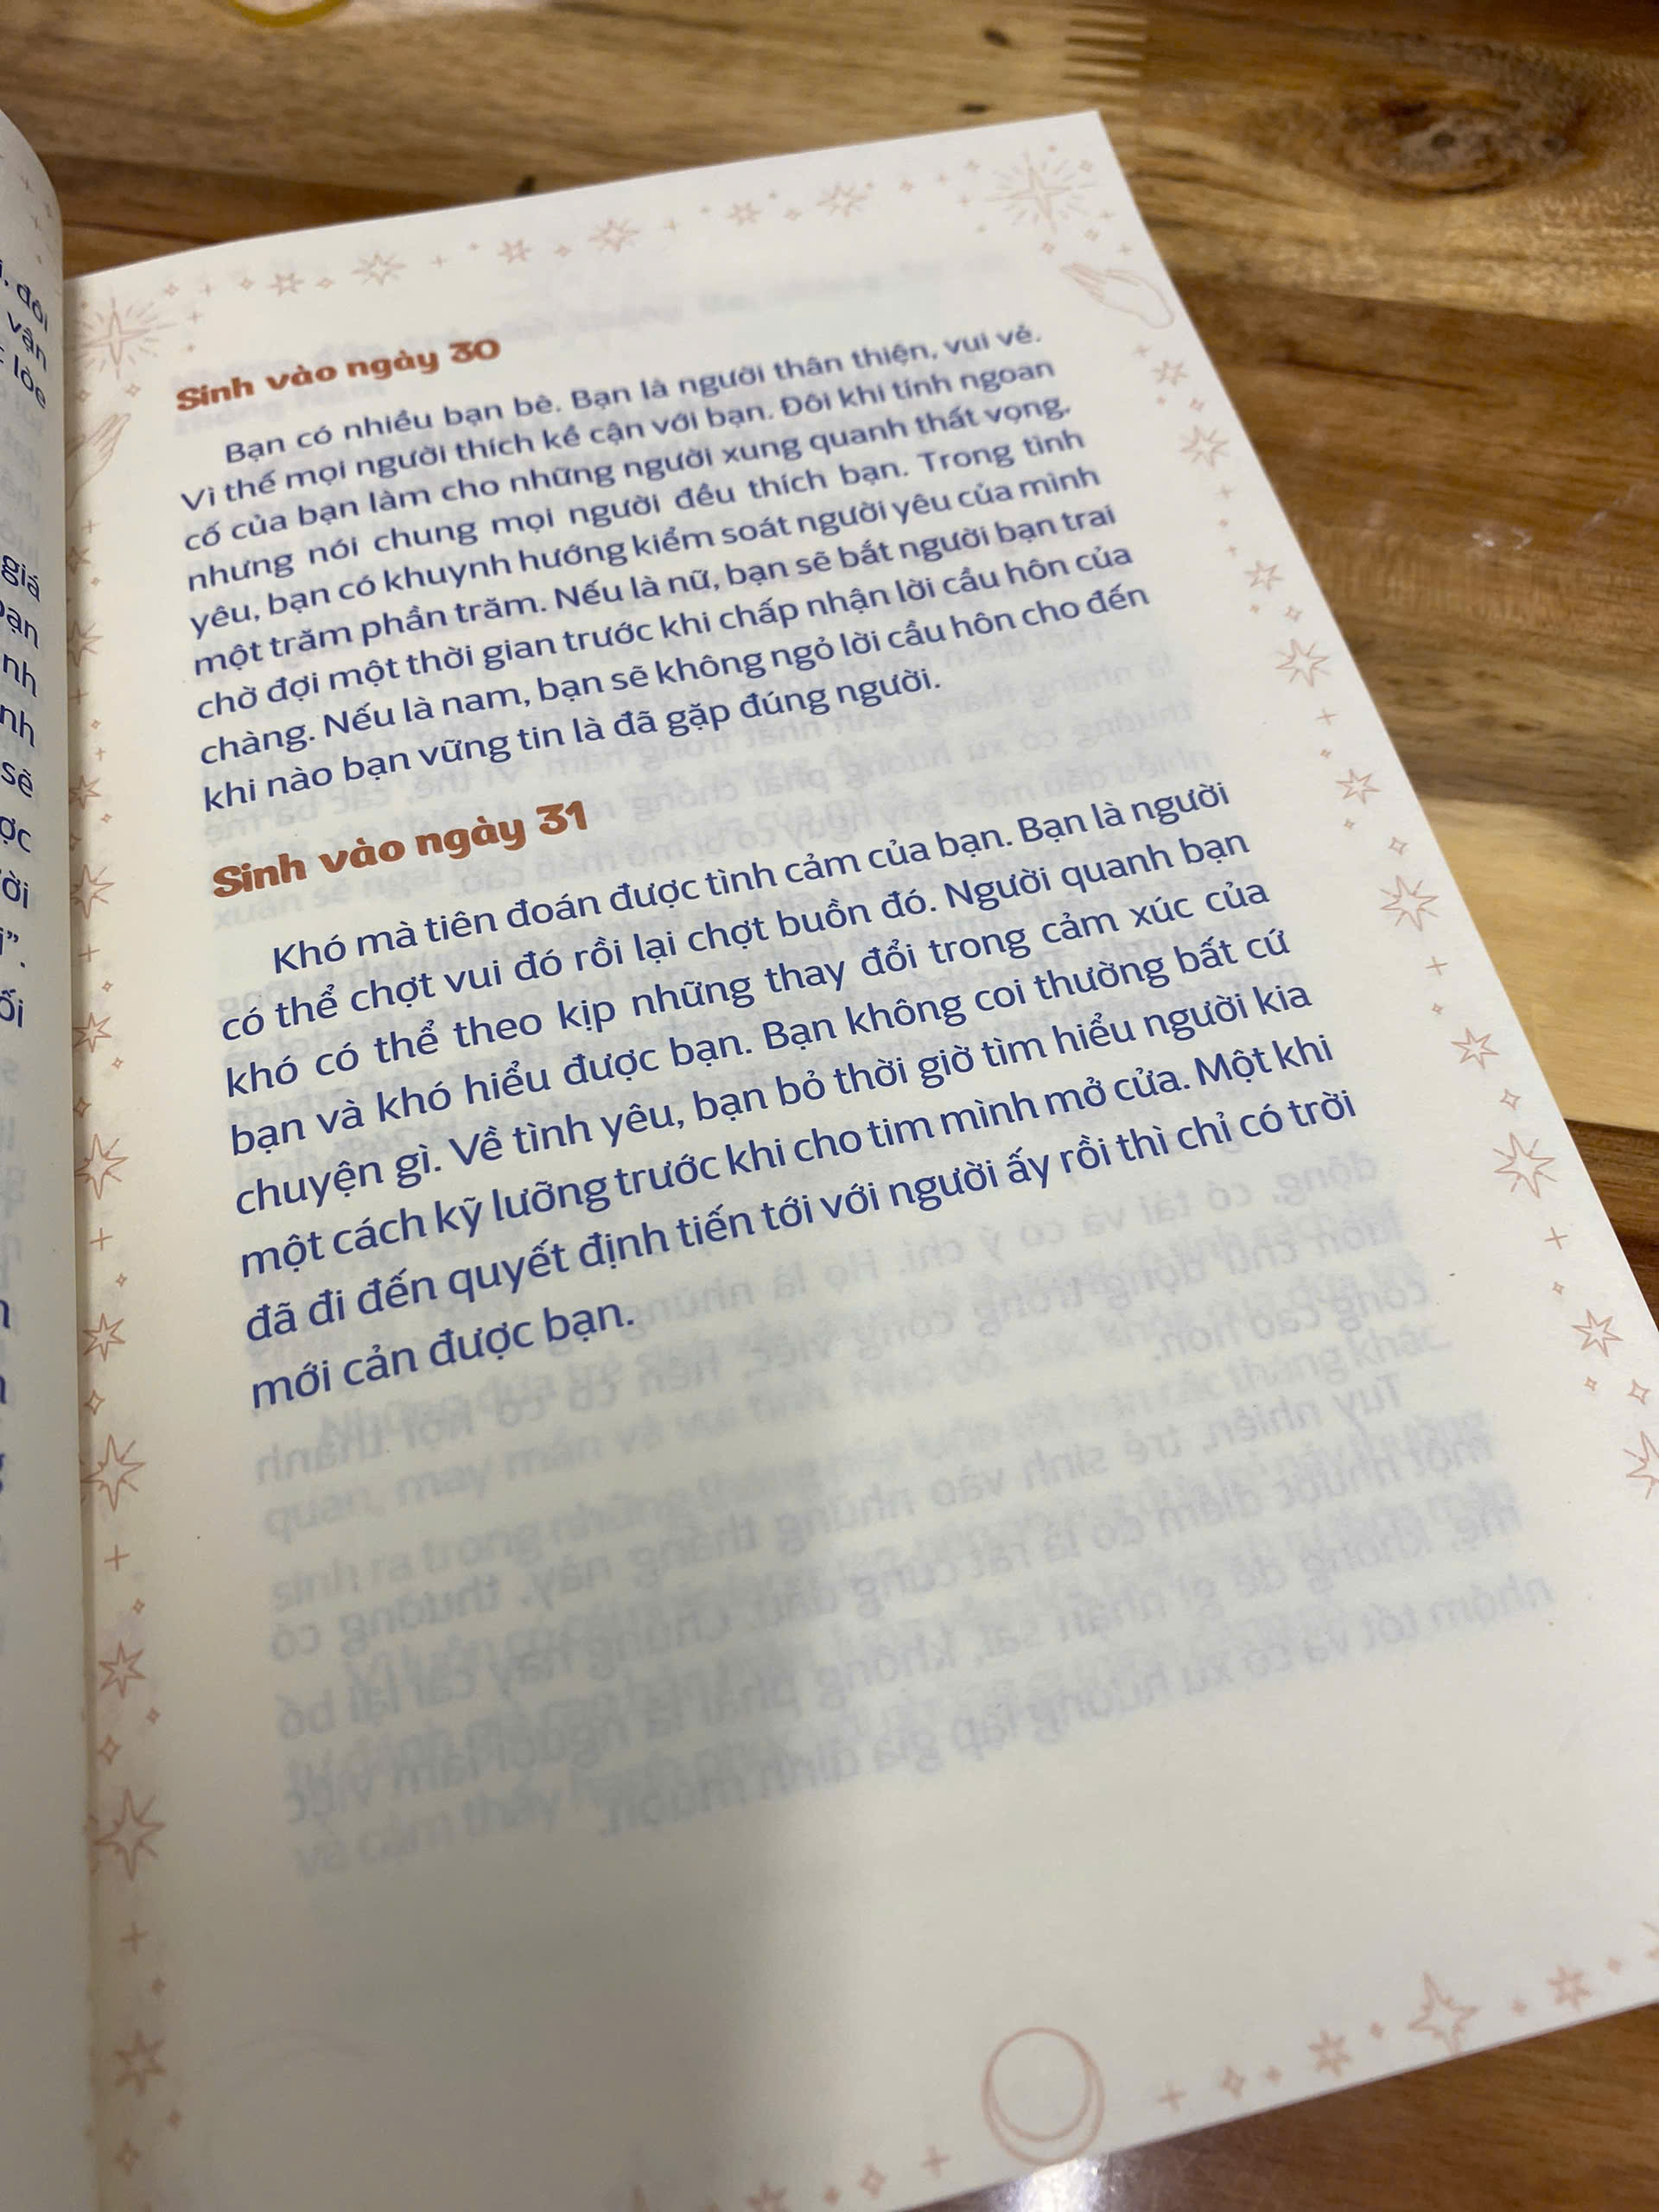 Sinh vào ngày 30
Bạn có nhiều bạn bè. Bạn là người thân thiện, vui vẻ.
Vì thế mọi người thích kề cận với bạn. Đôi khi tính ngoan
cố của bạn làm cho những người xung quanh thất vọng,
nhưng nói chung mọi người đều thích bạn. Trong tình
yêu, bạn có khuynh hướng kiểm soát người yêu của mình
một trăm phần trăm. Nếu là nữ, bạn sẽ bắt người bạn trai
chờ đợi một thời gian trước khi chấp nhận lời cầu hôn của
chàng. Nếu là nam, bạn sẽ không ngỏ lời cầu hôn cho đến
khi nào bạn vững tin là đã gặp đúng người.
Sinh vào ngày 31
Khó mà tiên đoán được tình cảm của bạn. Bạn là người
có thể chợt vui đó rồi lại chợt buồn đó. Người quanh bạn
khó có thể theo kịp những thay đổi trong cảm xúc của
bạn và khó hiểu được bạn. Bạn không coi thường bất cứ
chuyện gì. Về tình yêu, bạn bỏ thời giờ tìm hiểu người kia
một cách kỹ lưỡng trước khi cho tim mình mở cửa. Một khi
đã đi đến quyết định tiến tới với người ấy rồi thì chỉ có trời
mới cản được bạn.